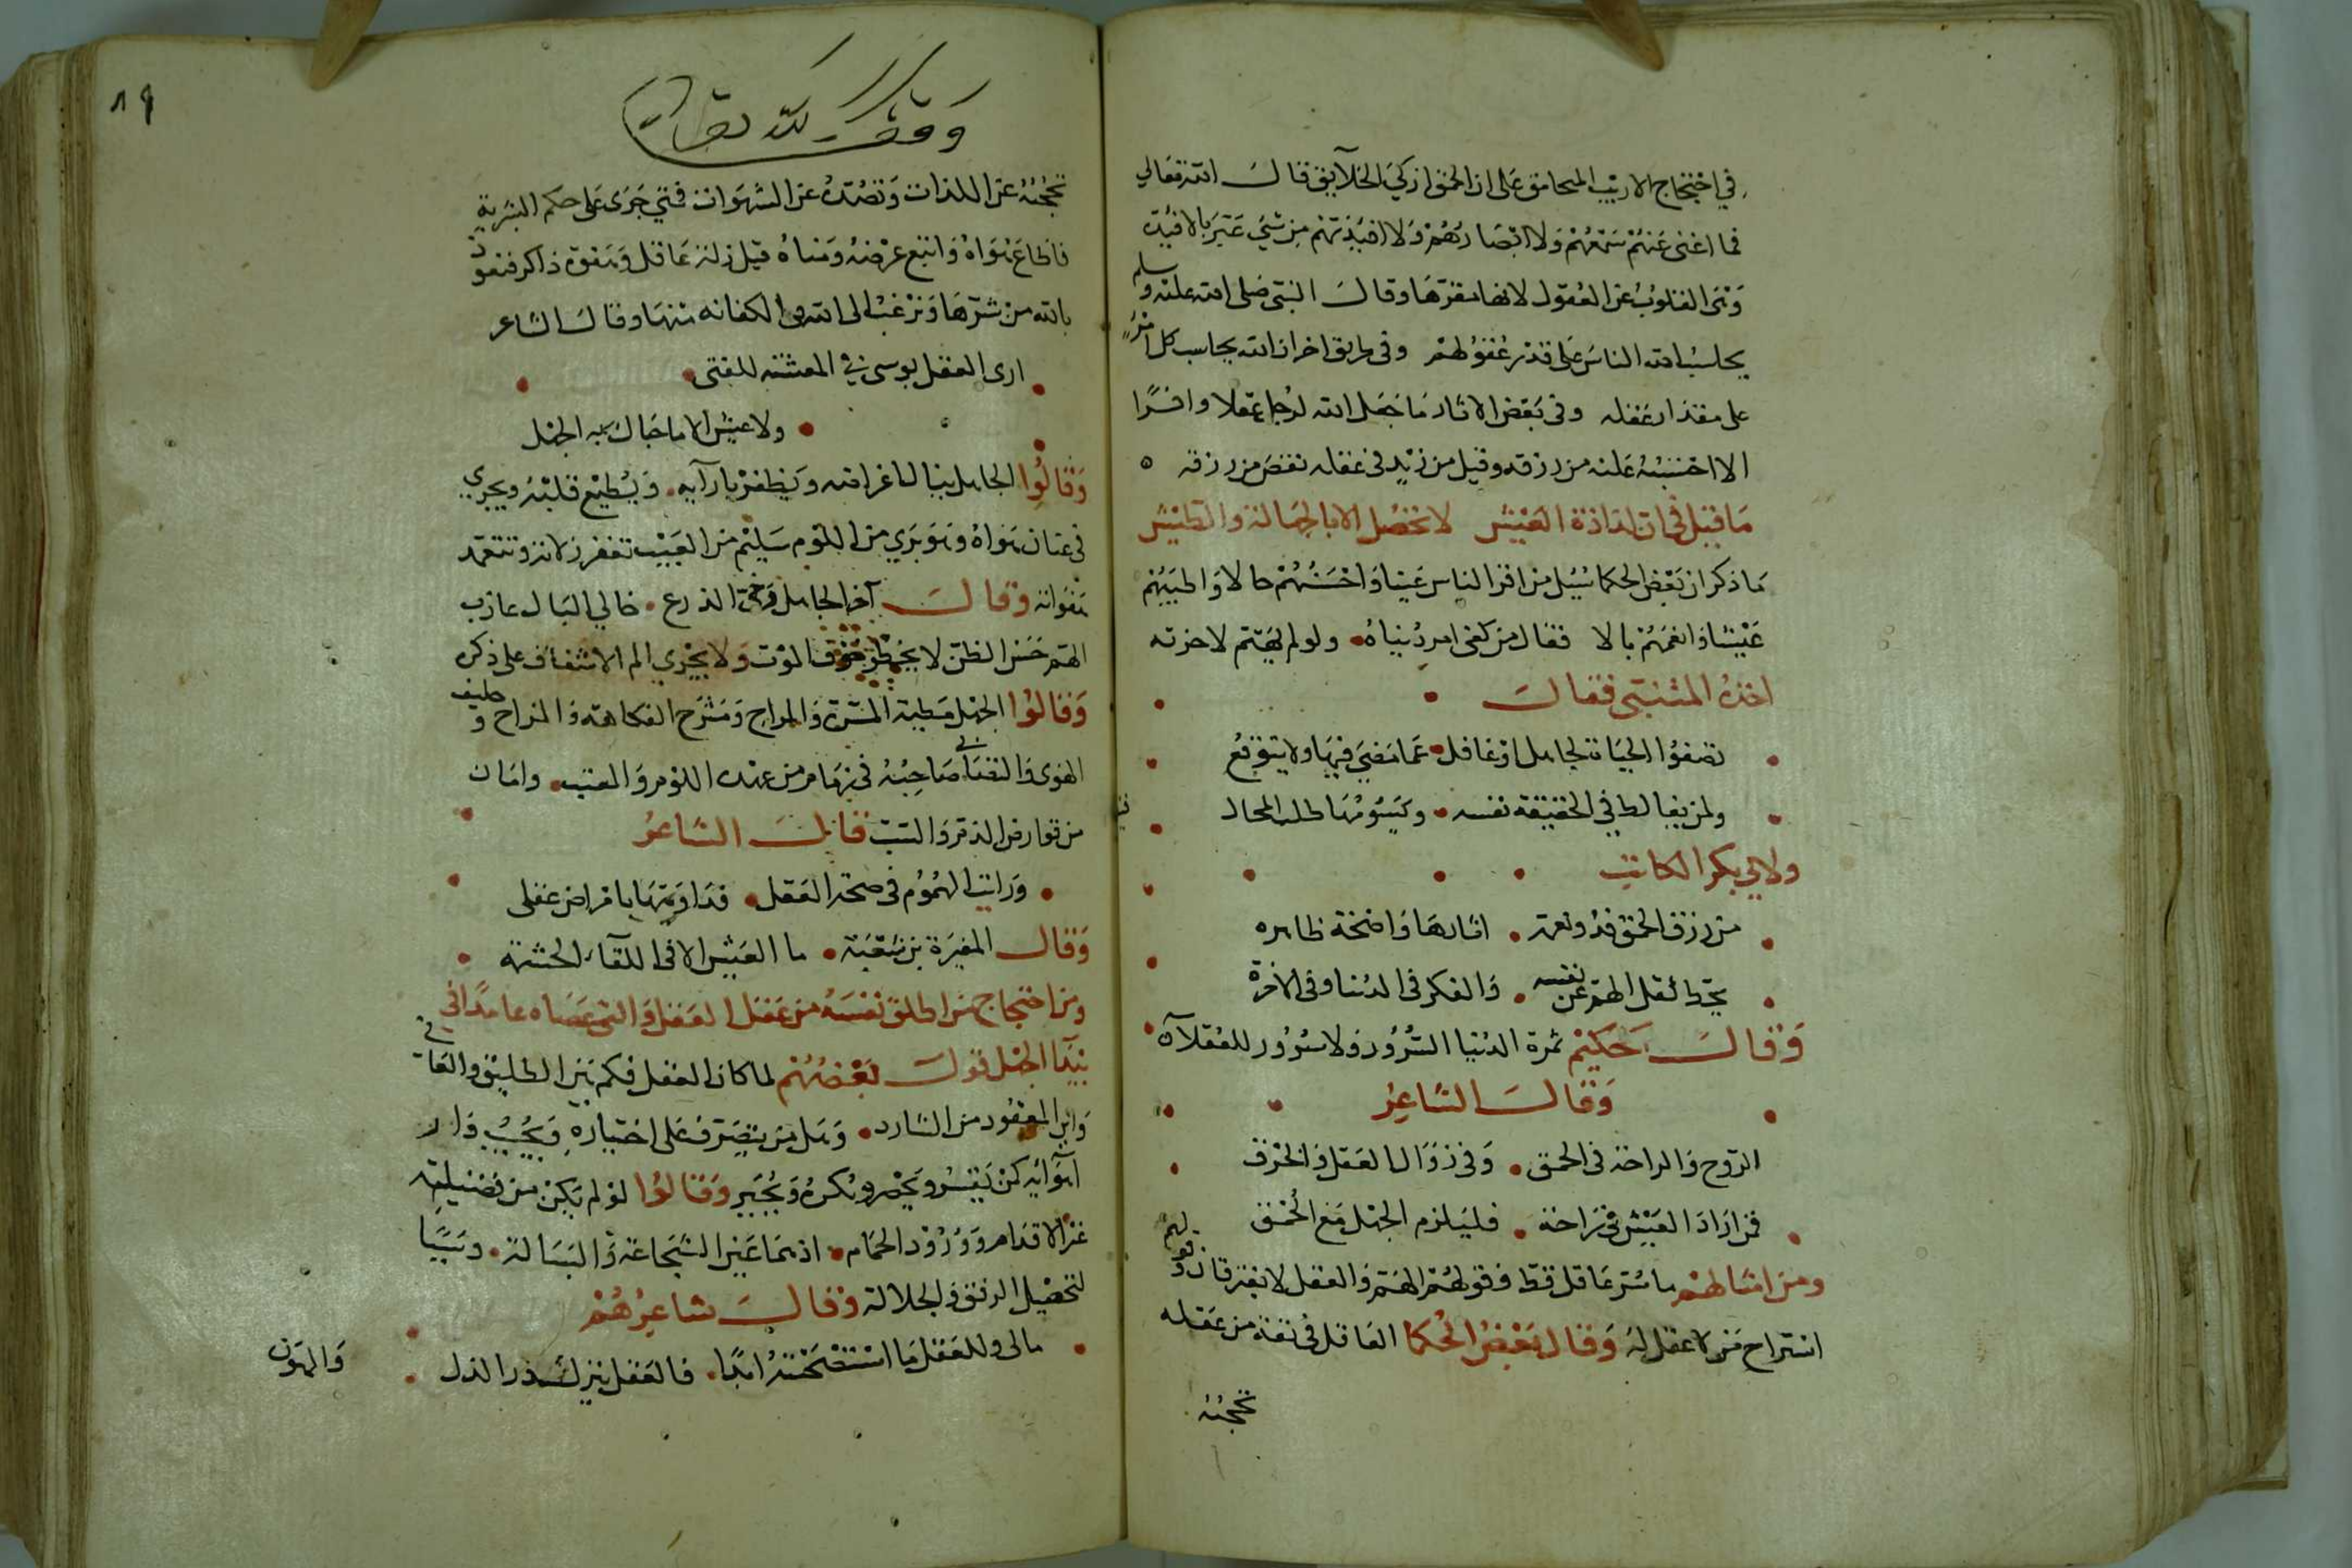 في احتجاج الاريب المحامق على ان الحمق ازكي الخلايق قال الله تعالي
فما اغنى عنهم سمعهم ولا ابصارهم ولا افئدتهم من شيء عبر بالافئدة
وهى القلوب عن العقول لانها مقرها وقال النبى صلى الله عليه وسلم
يحاسب الله الناس على قدر عقولهم وفى طريق اخر ان الله يحاسب كل امرئ
على مقدار عقله وفى بعض الاثار ما جعل الله لرجل عقلا وافرًا
الا احتسبه عليه من رزقه وقيل من زيد فى عقله نقص من رزقه ه
ما قيل في ان لذاذة العيش لا تحصل الا بالجهالة والطيش
ما ذكر ان بعض الحكما سيل من اقر الناس عينا واحسنهم حالا واطيبهم
عيشا وانعمهم بالا فقال من كفى امر دنياه ولو لم يهتم لاخرته
اخذه المتنبى فقال
تصفوا الحياة لجاهل او غافل عما مضى فيها ولا يتوقع
ولمن يغالط في الحقيقة نفسه ويسومها طلب المحال
ولابي بكر الكاتب
من رزق الحمق فذو نعمة اثارها واضحة ظاهره
يحط ثقل الهم عن نفسه والفكر فى الدنيا وفى الاخرة
وقال حكيم ثمرة الدنيا السرور ولا سرور للعقلآء
وقال الشاعر
الروح والراحة فى الحمق وفى زوال العقل والخرق
فمن اراد العيش فى راحة فليلزم الجهل مع الحمق
ومن امثالهم ما سر عاقل قط وقولهم الهم والعقل لا يفترقان وقولهم
استراح من لا عقل له وقال بعض الحكما العاقل فى نفة من عقله
تحجبه
٨٩
وقف لله تعالى
تحجبه عن اللذات وتصده عن الشهوات فمتي جرى على حكم البشرية
فاطاع هواه واتبع غرضه ومناه قيل زلة عاقل وهفوة ذاكر فنعوذ
بالله من شرها ونرغب الى الله فى الكفاية منها وقال الشاعر
ارى العقل بوسى في المعيشة للفتى
ولا عيش الا ما حباك به الجهل
وقالوا الجاهل ينال اغراضه ويظفر بارآيه ويطيع قلبه ويجري
فى عنان هواه وهو بري من اللوم سليم من العيب تغفر زلاته وتتغمد
هفواته وقال آخر الجاهل رخى الذرع خالي البال عازب
الهم حسن الظن لا يخطر خوف الموت ولا يجري الم الاشفاق على ذكره
وقالوا الجهل مطية المسرة والمراح ومسرح الفكاهة والمزاح وحليف
الهوى والتصابى صاحبه في ذمام من عهدة اللوم والعتب وامان
من قوارض الذم والسب قال الشاعر
ورايت الهموم فى صحة العقل فداويتها بامراض عقلى
وقال المغيرة بن شعبة ما العيش الا فى القآء الحشمة
ومن احتجاج من اطلق نفسه من عقل العقل والقى عصاه عامدًا في
بيدآ الجهل قول بعضهم لما كان العقل فكم بين الطليق والعانى
واين المعقود من الشارد وهل من يتصرف على اختياره ويجيب دار
اهوائه كمن يقسر ويحصر ويكره ويجبر وقالوا لو لم يكن من فضيلة
عن الاقدام وورود الحمام اذ هما عين الشجاعة والبسالة وسببا
لتحصيل الرفق والجلالة وقال شاعرهم
مالى وللعقل ما استصحبته ابدًا فالعقل ينزلك دار الذل
والهون